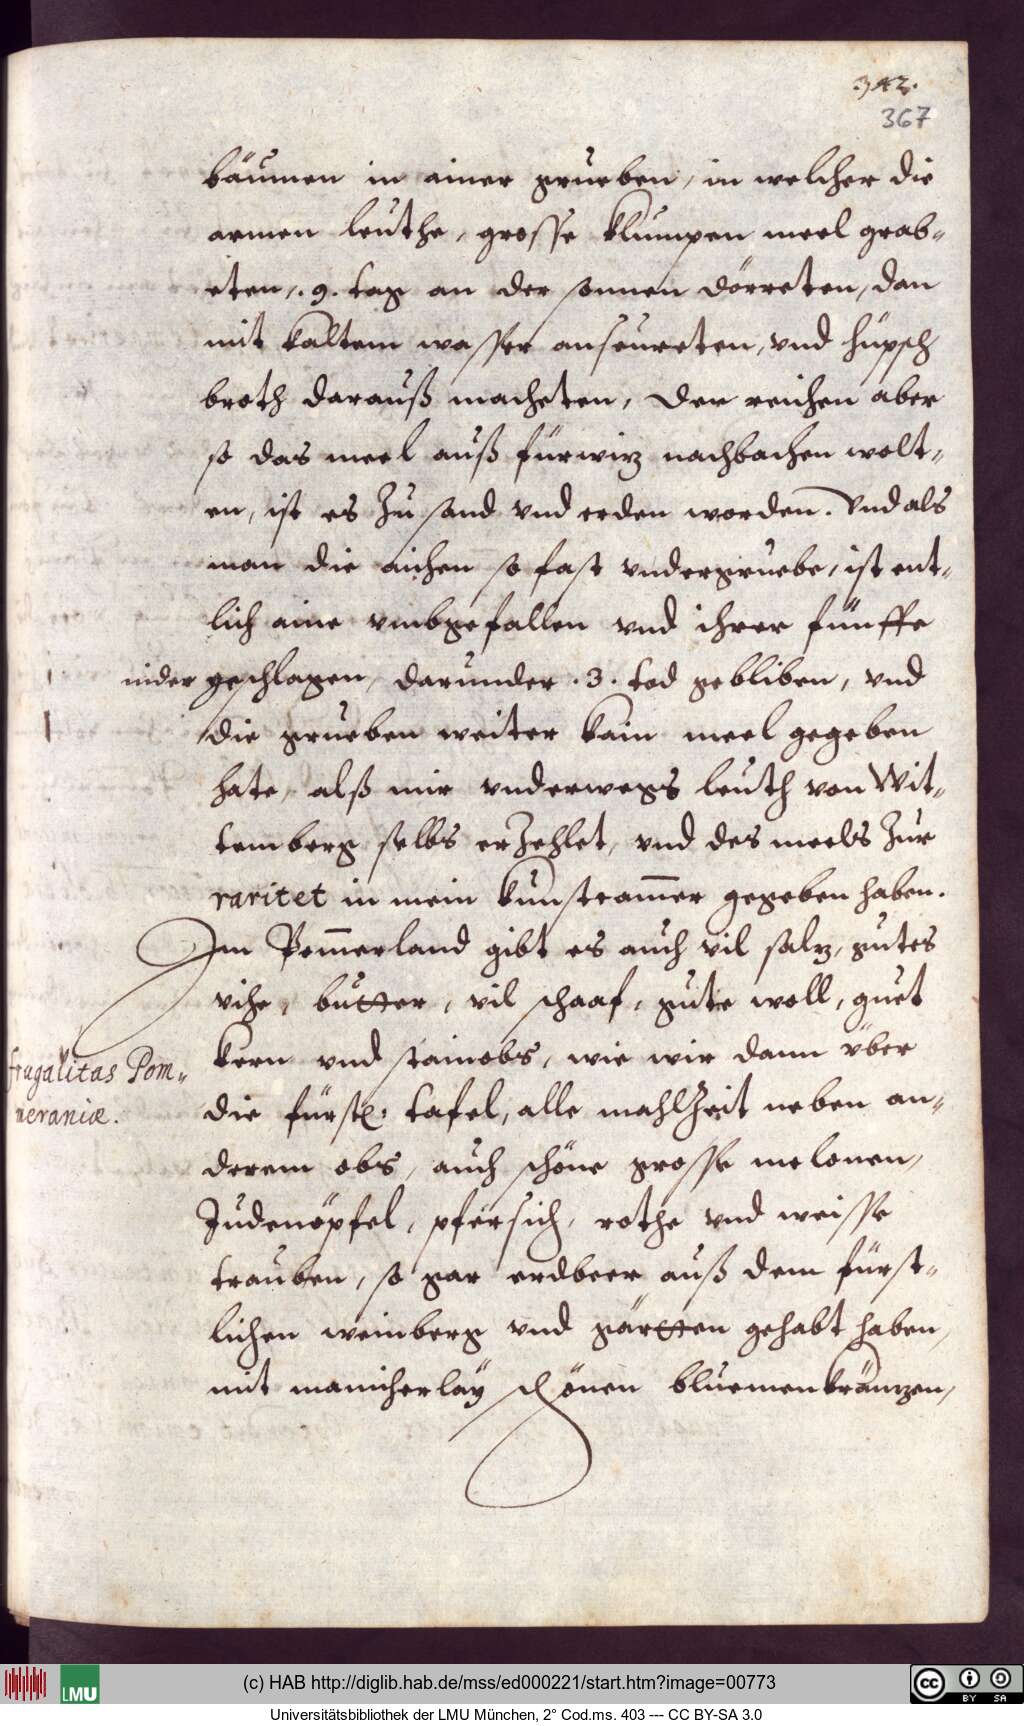 342.
367
bäumen in ainer grueben, in welcher die
armen leüthe, grosse klumpen meel grab-
eten, .9. tag an der sonnen dörreten, dan
mit kaltem wasser anseureten, vnd hüpsch
broth darauß macheten, Der reichen aber
so das meel auß fürwiz nachbachen wolt-
en, ist es zu sand vnd erden worden. Vnd als
man die aichen so fast vndergruebe, ist ent-
lich aine vmbgefallen vnd ihrer fünffe
nider geschlagen, darunder .3. tod gebliben, vnd
die grueben weiter kain meel gegeben
hate, alß mir vnderwegs leüth von Wit-
temberg selbs erzehlet, vnd des meels zur
raritet in mein kunstcam̅er gegeben haben.
Im Pom̅erland gibt es auch vil salz, gutes
vihe, butter, vil schaaf, gute woll, guet
kern vnd stainobs, wie wir dann über
frugalitas Pom-
meraniæ.
die fürstl: tafel, alle mahlzeit neben an-
derem obs, auch schöne grosse melonen,
Judenöpfel, pfersich, rothe vnd weisse
trauben, so gar erdbeer auß dem fürst-
lichen weinberg vnd gärtten gehabt haben,
mit manicherlay schönen bluemenkräntzen,
(c) HAB http://diglib.hab.de/mss/ed000221/start.htm?image=00773
Universitätsbibliothek der LMU München, 2° Cod.ms. 403 --- CC BY-SA 3.0
LMU
cc
BY
SA